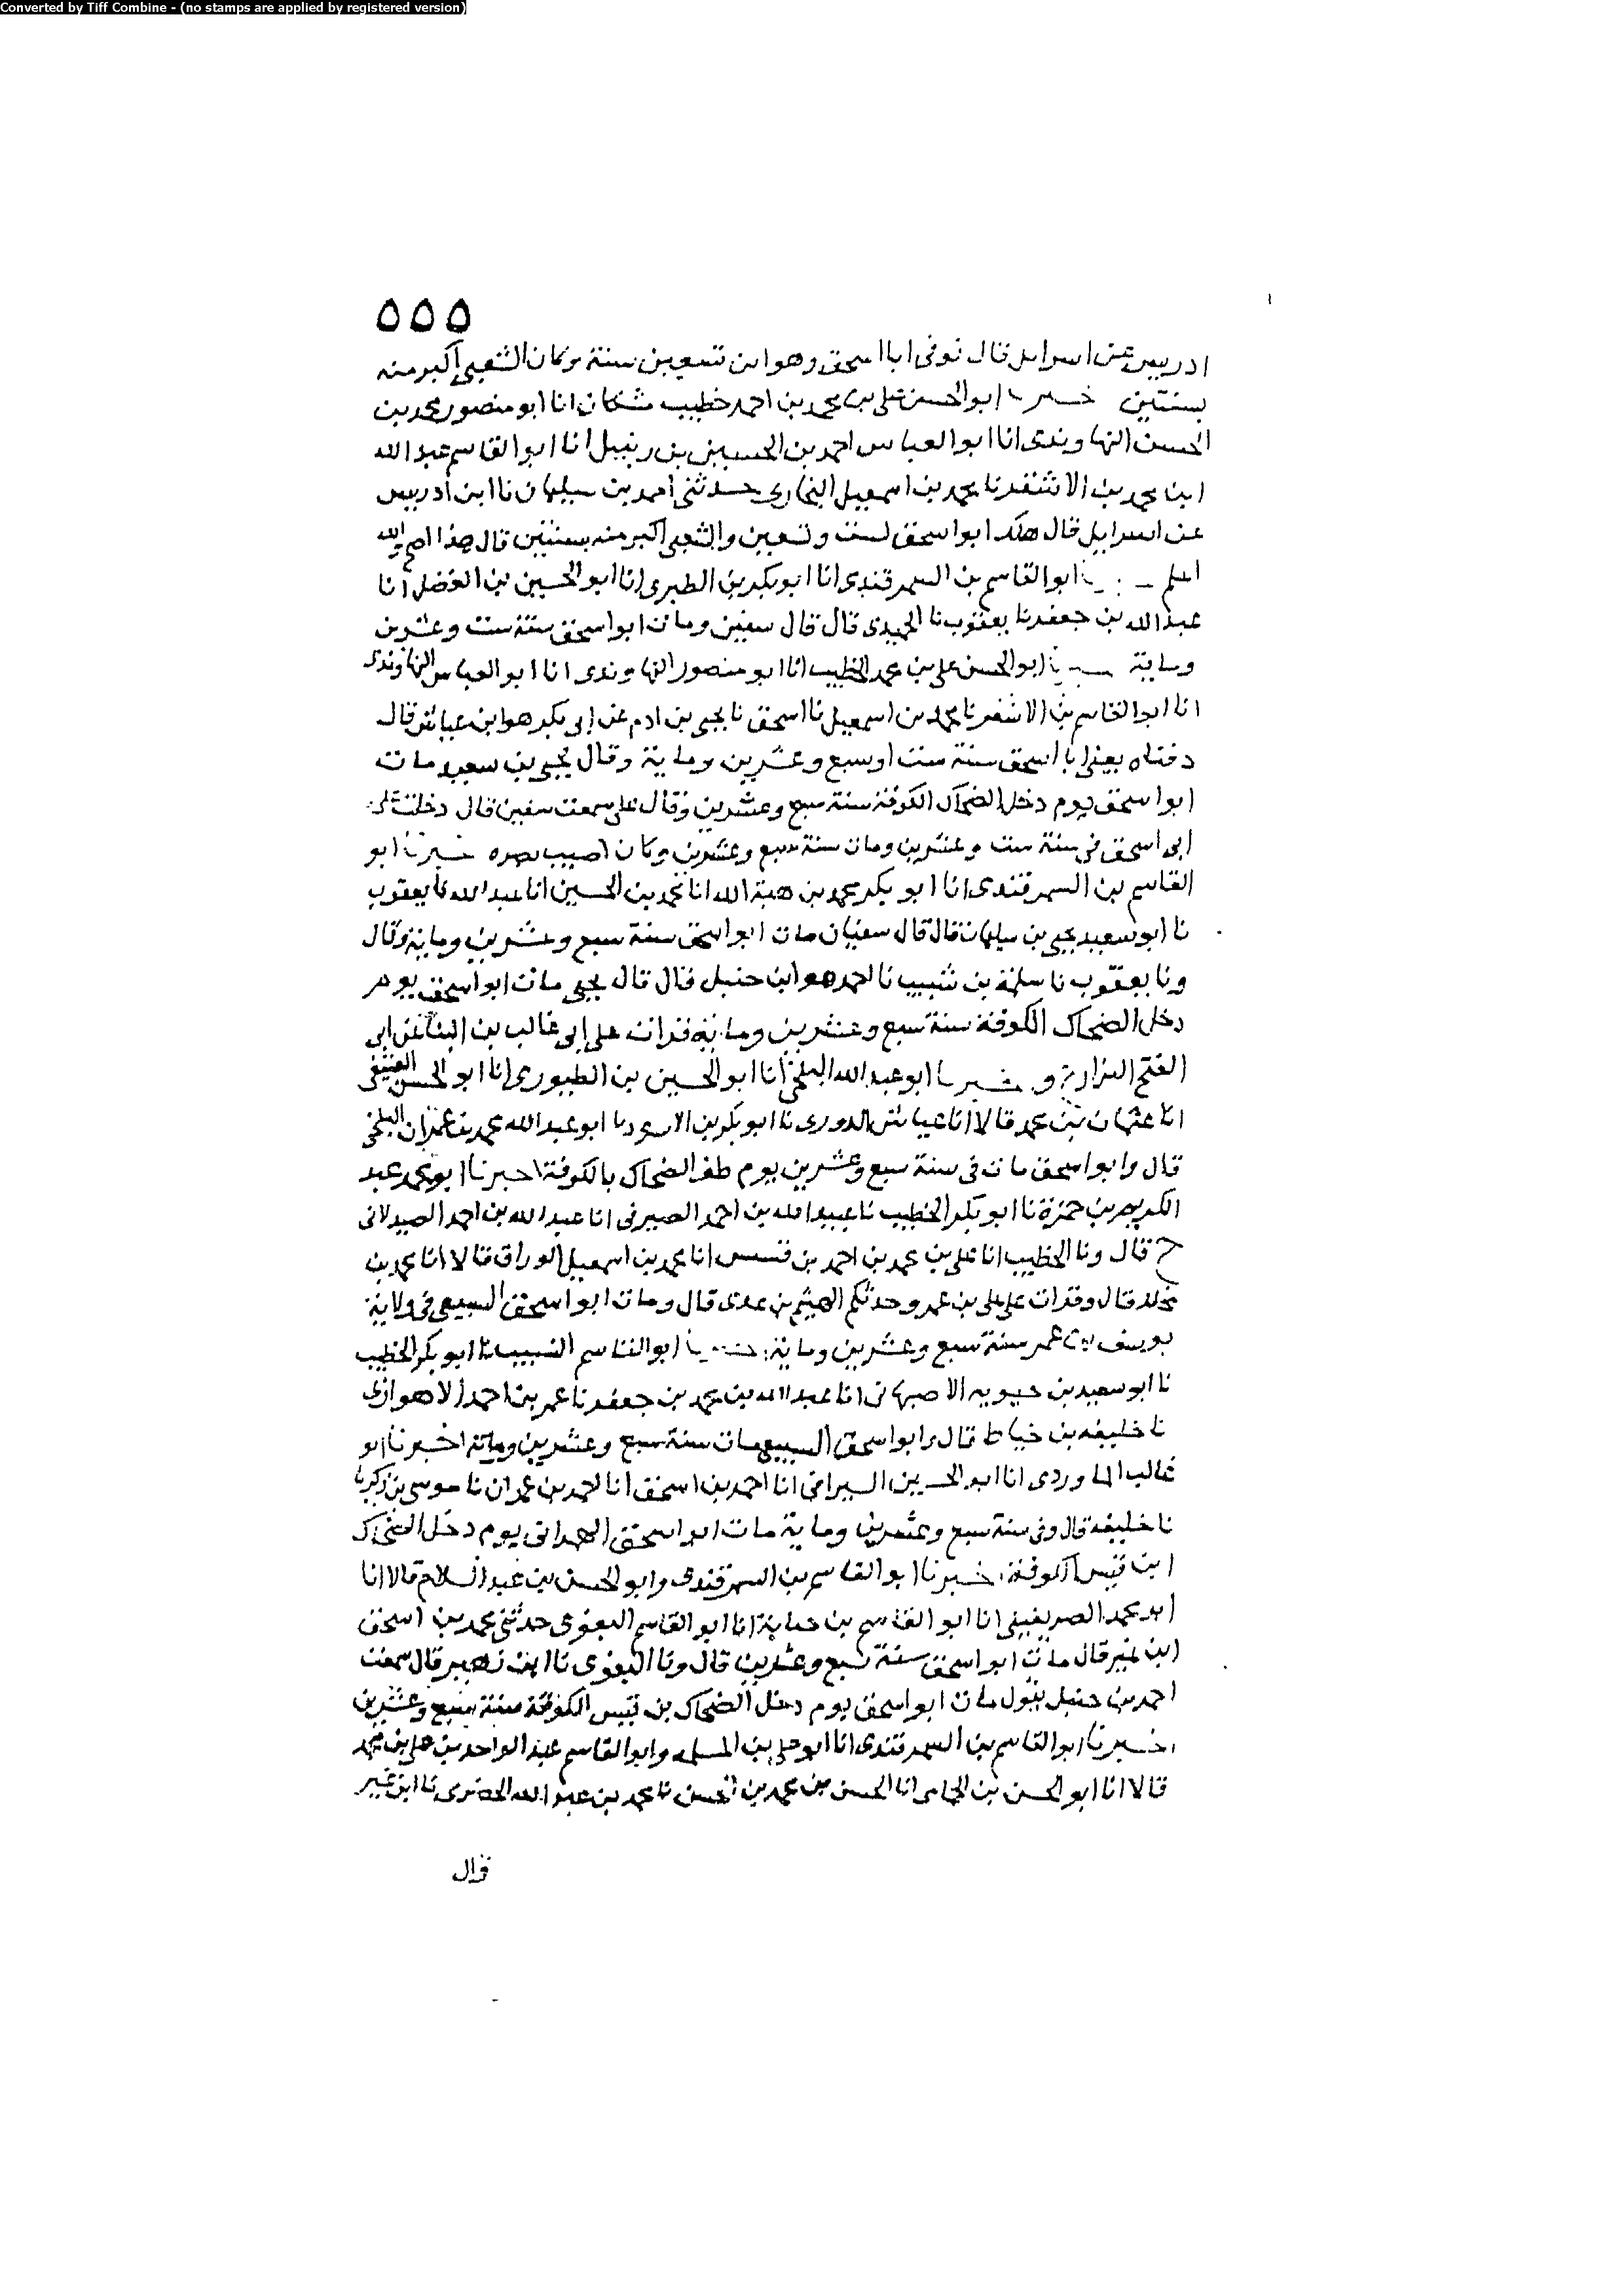 Converted by Tiff Combine - (no stamps are applied by registered version)
٥٥٥
ادريس عن اسرايل قال توفى ابا اسحق وهو ابن تسعين سنة وكان الشعبي اكبر منه
بسنتين خبرنا ابو الحسن على بن محمد بن احمد خطيب مشكان انا ابو منصور محمد بن
الحسن النهاوندى انا ابو العباس احمد بن الحسين بن زنبيل انا ابو القاسم عبد الله
ابن محمد بن الاشقر نا محمد بن اسمعيل البخارى حدثنى احمد بن سليمان نا ابن ادريس
عن اسرايل قال هلك ابو اسحق لست وتسعين والشعبي اكبر منه بسنتين قال هذا اصح والله
اعلم ابو القاسم بن السمرقندى انا ابو بكر بن الطبرى انا ابو الحسين بن الفضل انا
عبد الله بن جعفر نا يعقوب نا الحميدى قال قال سفين ومات ابو اسحق سنة ست وعشرين
وماية ابو الحسن على بن محمد الخطيب انا ابو منصور النهاوندى انا ابو العباس النهاوندى
انا ابو القاسم بن الاشقر نا محمد بن اسمعيل نا اسحق نا يحيى بن ادم عن ابى بكر هو ابن عياش قال
دفناه يعنى ابا اسحق سنة ست او سبع وعشرين وماية وقال يحيى بن سعيد مات
ابو اسحق يوم دخل الضحاك الكوفة سنة سبع وعشرين وقال على سمعت سفين قال دخلت على
ابى اسحق فى سنة ست وعشرين ومات سنة سبع وعشرين وكان اصيب بصره خبرنا ابو
القاسم بن السمرقندى انا ابو بكر محمد بن هبة الله انا محمد بن الحسين انا عبد الله نا يعقوب
نا ابو سعيد يحيى بن سليمان قال قال سفيان مات ابو اسحق سنة سبع وعشرين وماية وقال
ونا يعقوب نا سلمة بن شبيب نا احمد هو ابن حنبل قال قال يحيى مات ابو اسحق يوم
دخل الضحاك الكوفة سنة سبع وعشرين وماية قرات على ابى غالب بن البنا عن ابى
الفتح الرزاز و خبرنا ابو عبد الله البلخى انا ابو الحسين بن الطيورى انا ابو الحسن العتيقى
انا عثمان بن محمد قالا انا عياش الدورى نا ابو بكر بن الاسود نا ابو عبد الله محمد بن عمران البلخى
قال وابو اسحق مات فى سنة سبع وعشرين يوم ظفر الضحاك بالكوفة اخبرنا ابو محمد عبد
الكريم بن حمزة نا ابو بكر الخطيب نا عبيد الله بن احمد الصيرفى انا عبد الله بن احمد الصيدلانى
ح قال ونا الخطيب انا على بن محمد بن احمد بن انا محمد بن اسمعيل الوراق قالا انا محمد بن
مخلد قال وقرات على على بن عمرو حدثكم الهيثم بن عدى قال ومات ابو اسحق السبيعى فى ولاية
يوسف بن عمر سنة سبع وعشرين وماية خبرنا ابو القاسم النسيب نا ابو بكر الخطيب
نا ابو سعيد بن حسويه الاصبهانى انا عبد الله بن محمد بن جعفر نا عمر بن احمد الاهوازى
نا خليفه بن خياط قال وابو اسحق السبيعى مات سنة سبع وعشرين وماية اخبرنا ابو
غالب الماوردى انا ابو الحسين السيرافى انا احمد بن اسحق انا احمد بن عمران نا موسى بن زكريا
نا خليفه قال وفى سنة سبع وعشرين وماية مات ابو اسحق الهمدانى يوم دخل الضحاك
ابن قيس الكوفة خبرنا ابو القاسم بن السمرقندى وابو الحسن بن عبد السلام قالا انا
ابو محمد الصريفينى انا ابو القاسم بن حبابة انا ابو القاسم البغوى حدثنى محمد بن اسحق
ابن نمير قال مات ابو اسحق سنة سبع وعشرين قال ونا البغوى نا ابن زهير قال سمعت
احمد بن حنبل يقول مات ابو اسحق يوم دخل الضحاك بن قيس الكوفة سنة سبع وعشرين
خبرنا ابو القاسم بن السمرقندى انا ابو على بن المسلمه وابو القاسم عبد الواحد بن على بن محمد
قالا انا ابو الحسن بن الحمامى انا الحسن بن محمد بن الحسن نا محمد بن عبد الله الحضرمى نا ابن نمير
قال